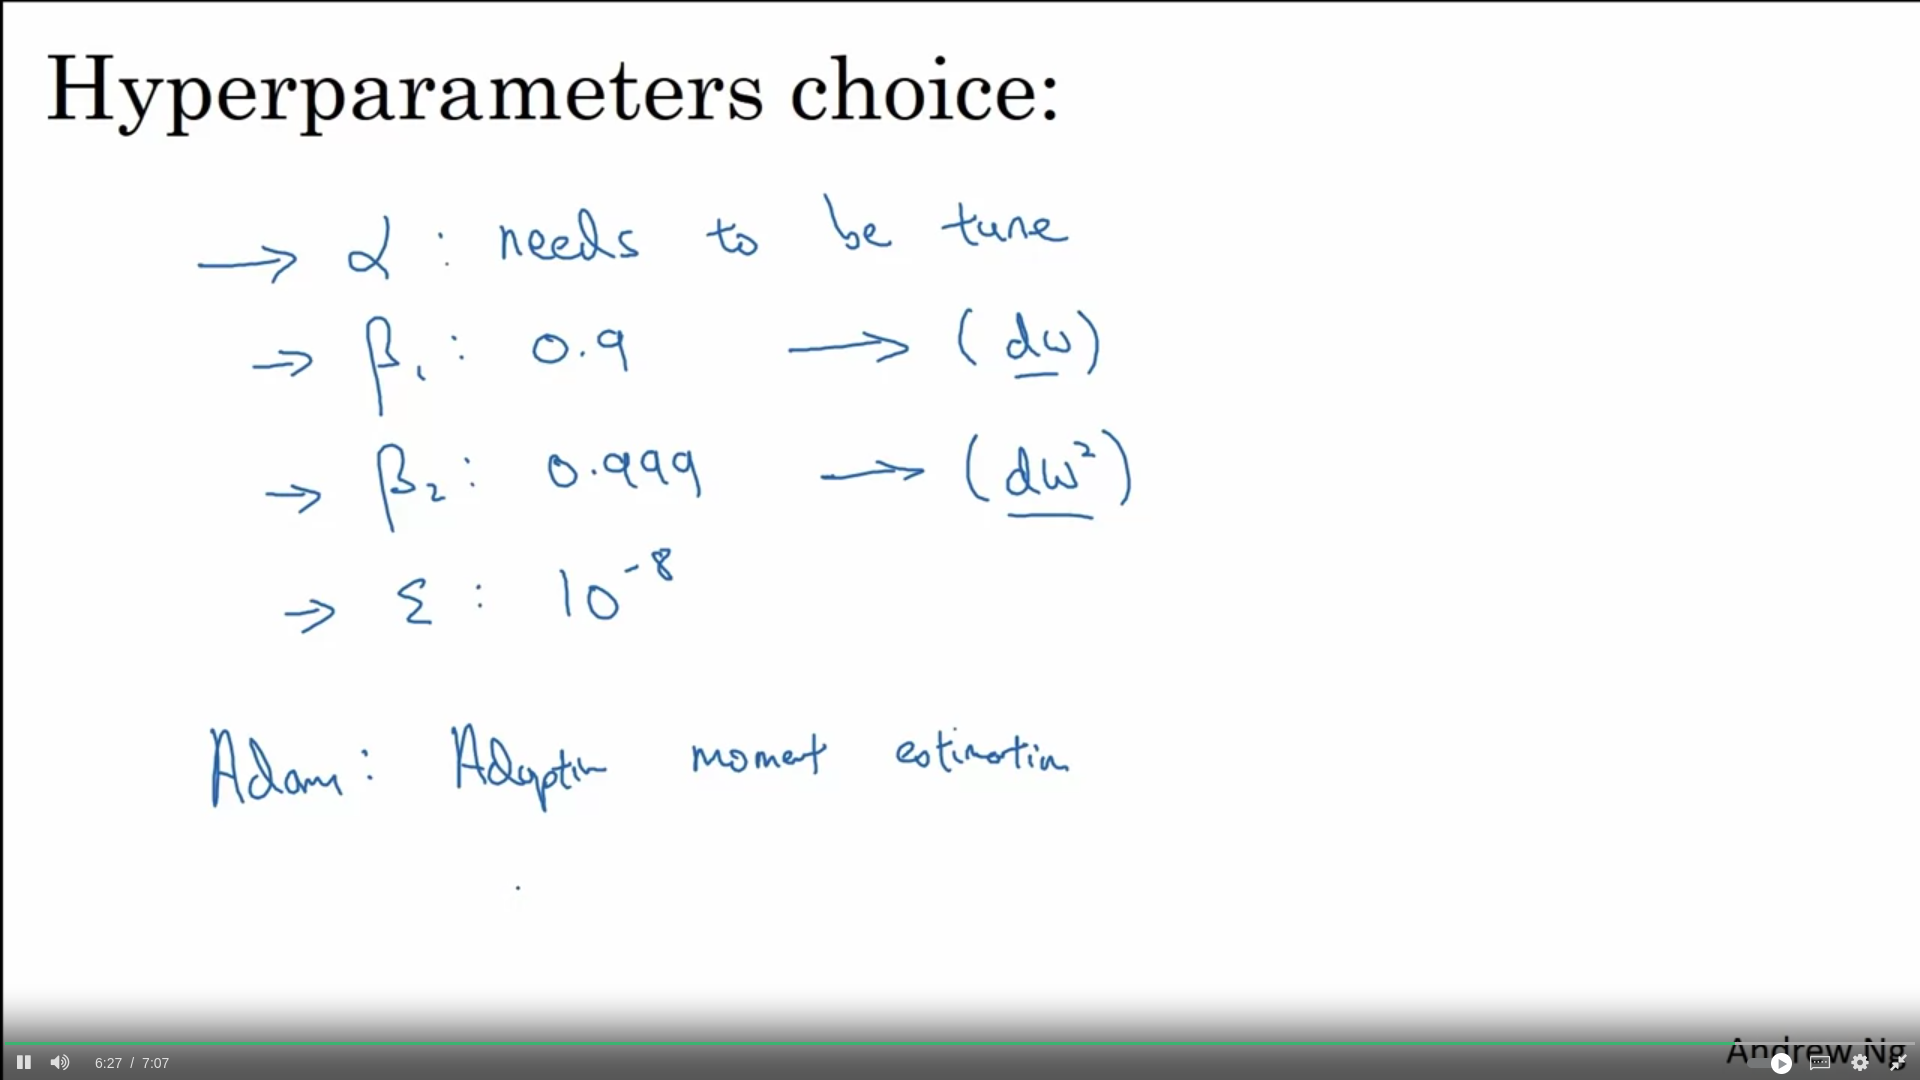 Hyperparameters choice:
→ α : needs to be tune
→ β₁ : 0.9 → (dw)
→ β₂ : 0.999 → (dw²)
→ ε : 10⁻⁸
Adam : Adaptive moment estimation
Andrew Ng
6:27 / 7:07